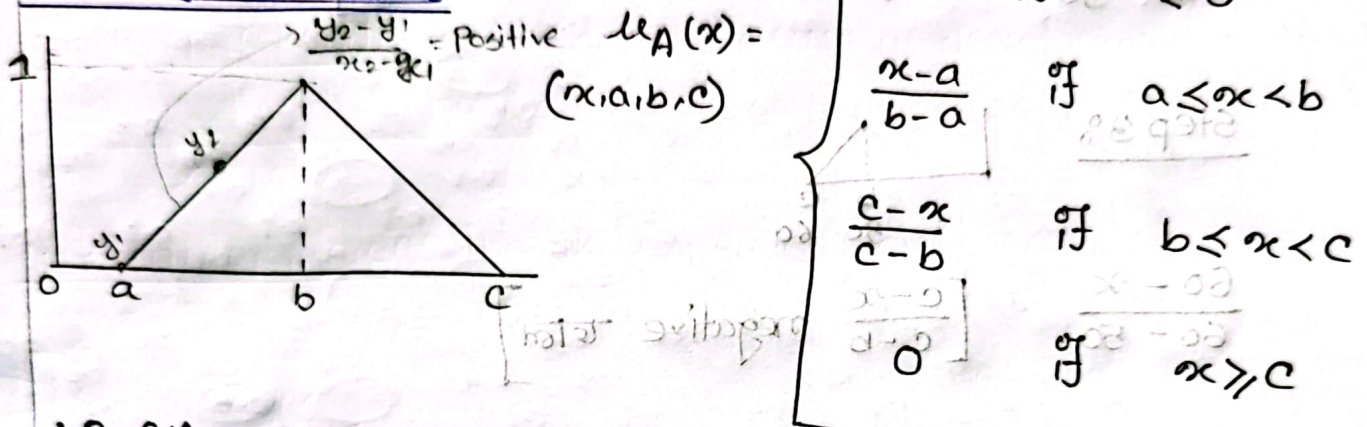 y₂-y₁ / x₂-x₁ = Positive μA(x) =
(x,a,b,c)
1
y₂
y₁
0 a b c
x-a / b-a if a≤x<b
c-x / c-b if b≤x<c
0 if x≥c